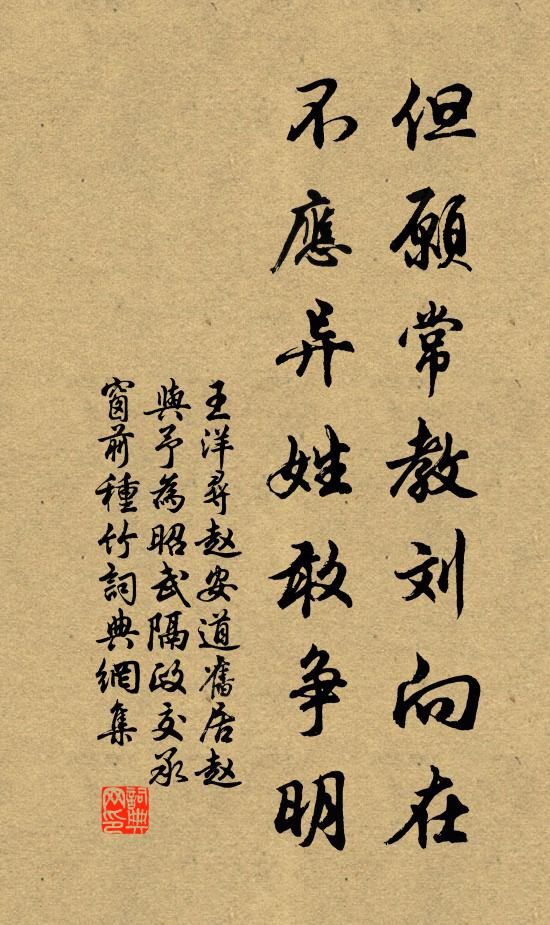 但願常教刘向在
不應异姓敢争明
王洋尋赵安道舊居赵
與予為昭武隔政交承
窗前種竹詞典網集
詞典网印